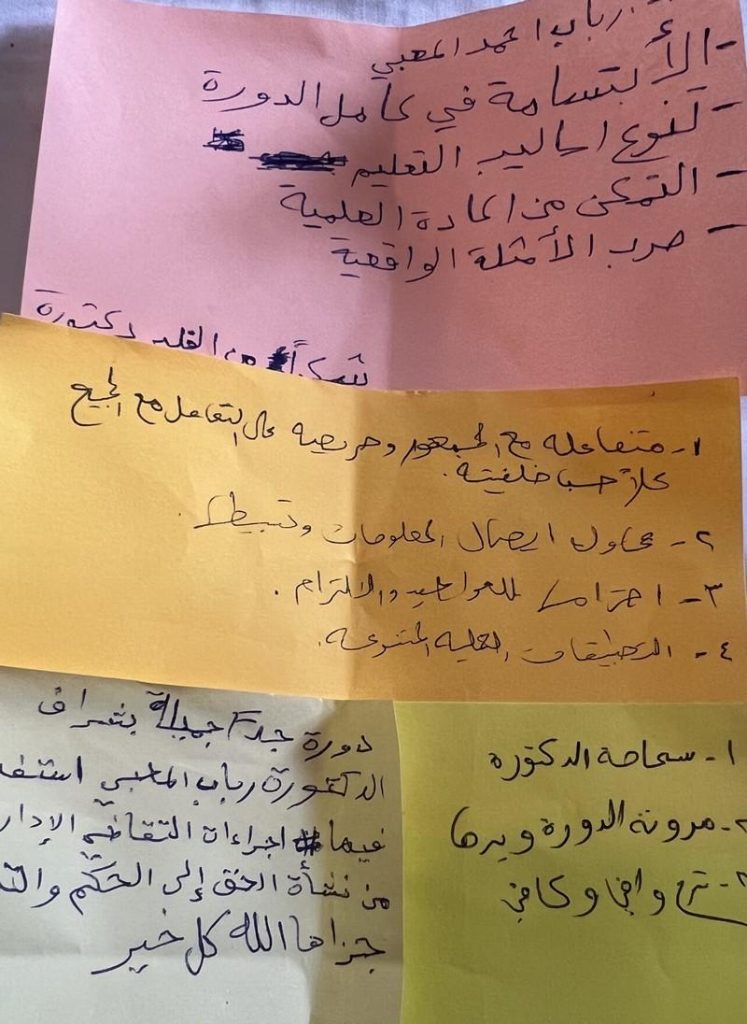 رباب احمد المعبي
- الأبتسامة في كامل الدورة
- تنوع اساليب التعليم
- التمكن من المادة العلمية
- ضرب الأمثلة الواقعية
شكراً من القلب دكتورة
١- متفاعله مع الجمهور وحريصه على التفاعل مع الجميع
كلاً حسب خلفيته.
٢- تحاول ايصال المعلومات وتبسيطها.
٣- احترامها للمواعيد والالتزام.
٤- التطبيقات العملية المتنوعه.
دورة جداً جميلة بشراف
الدكتورة رباب المعبي استفد
فيها اجراءات التقاضي الإدار
من نشأة الحق إلى الحكم والت
جزاها الله كل خير
١- سماحة الدكتورة
مرونة الدورة ويسرها
شرح وافي وكافي